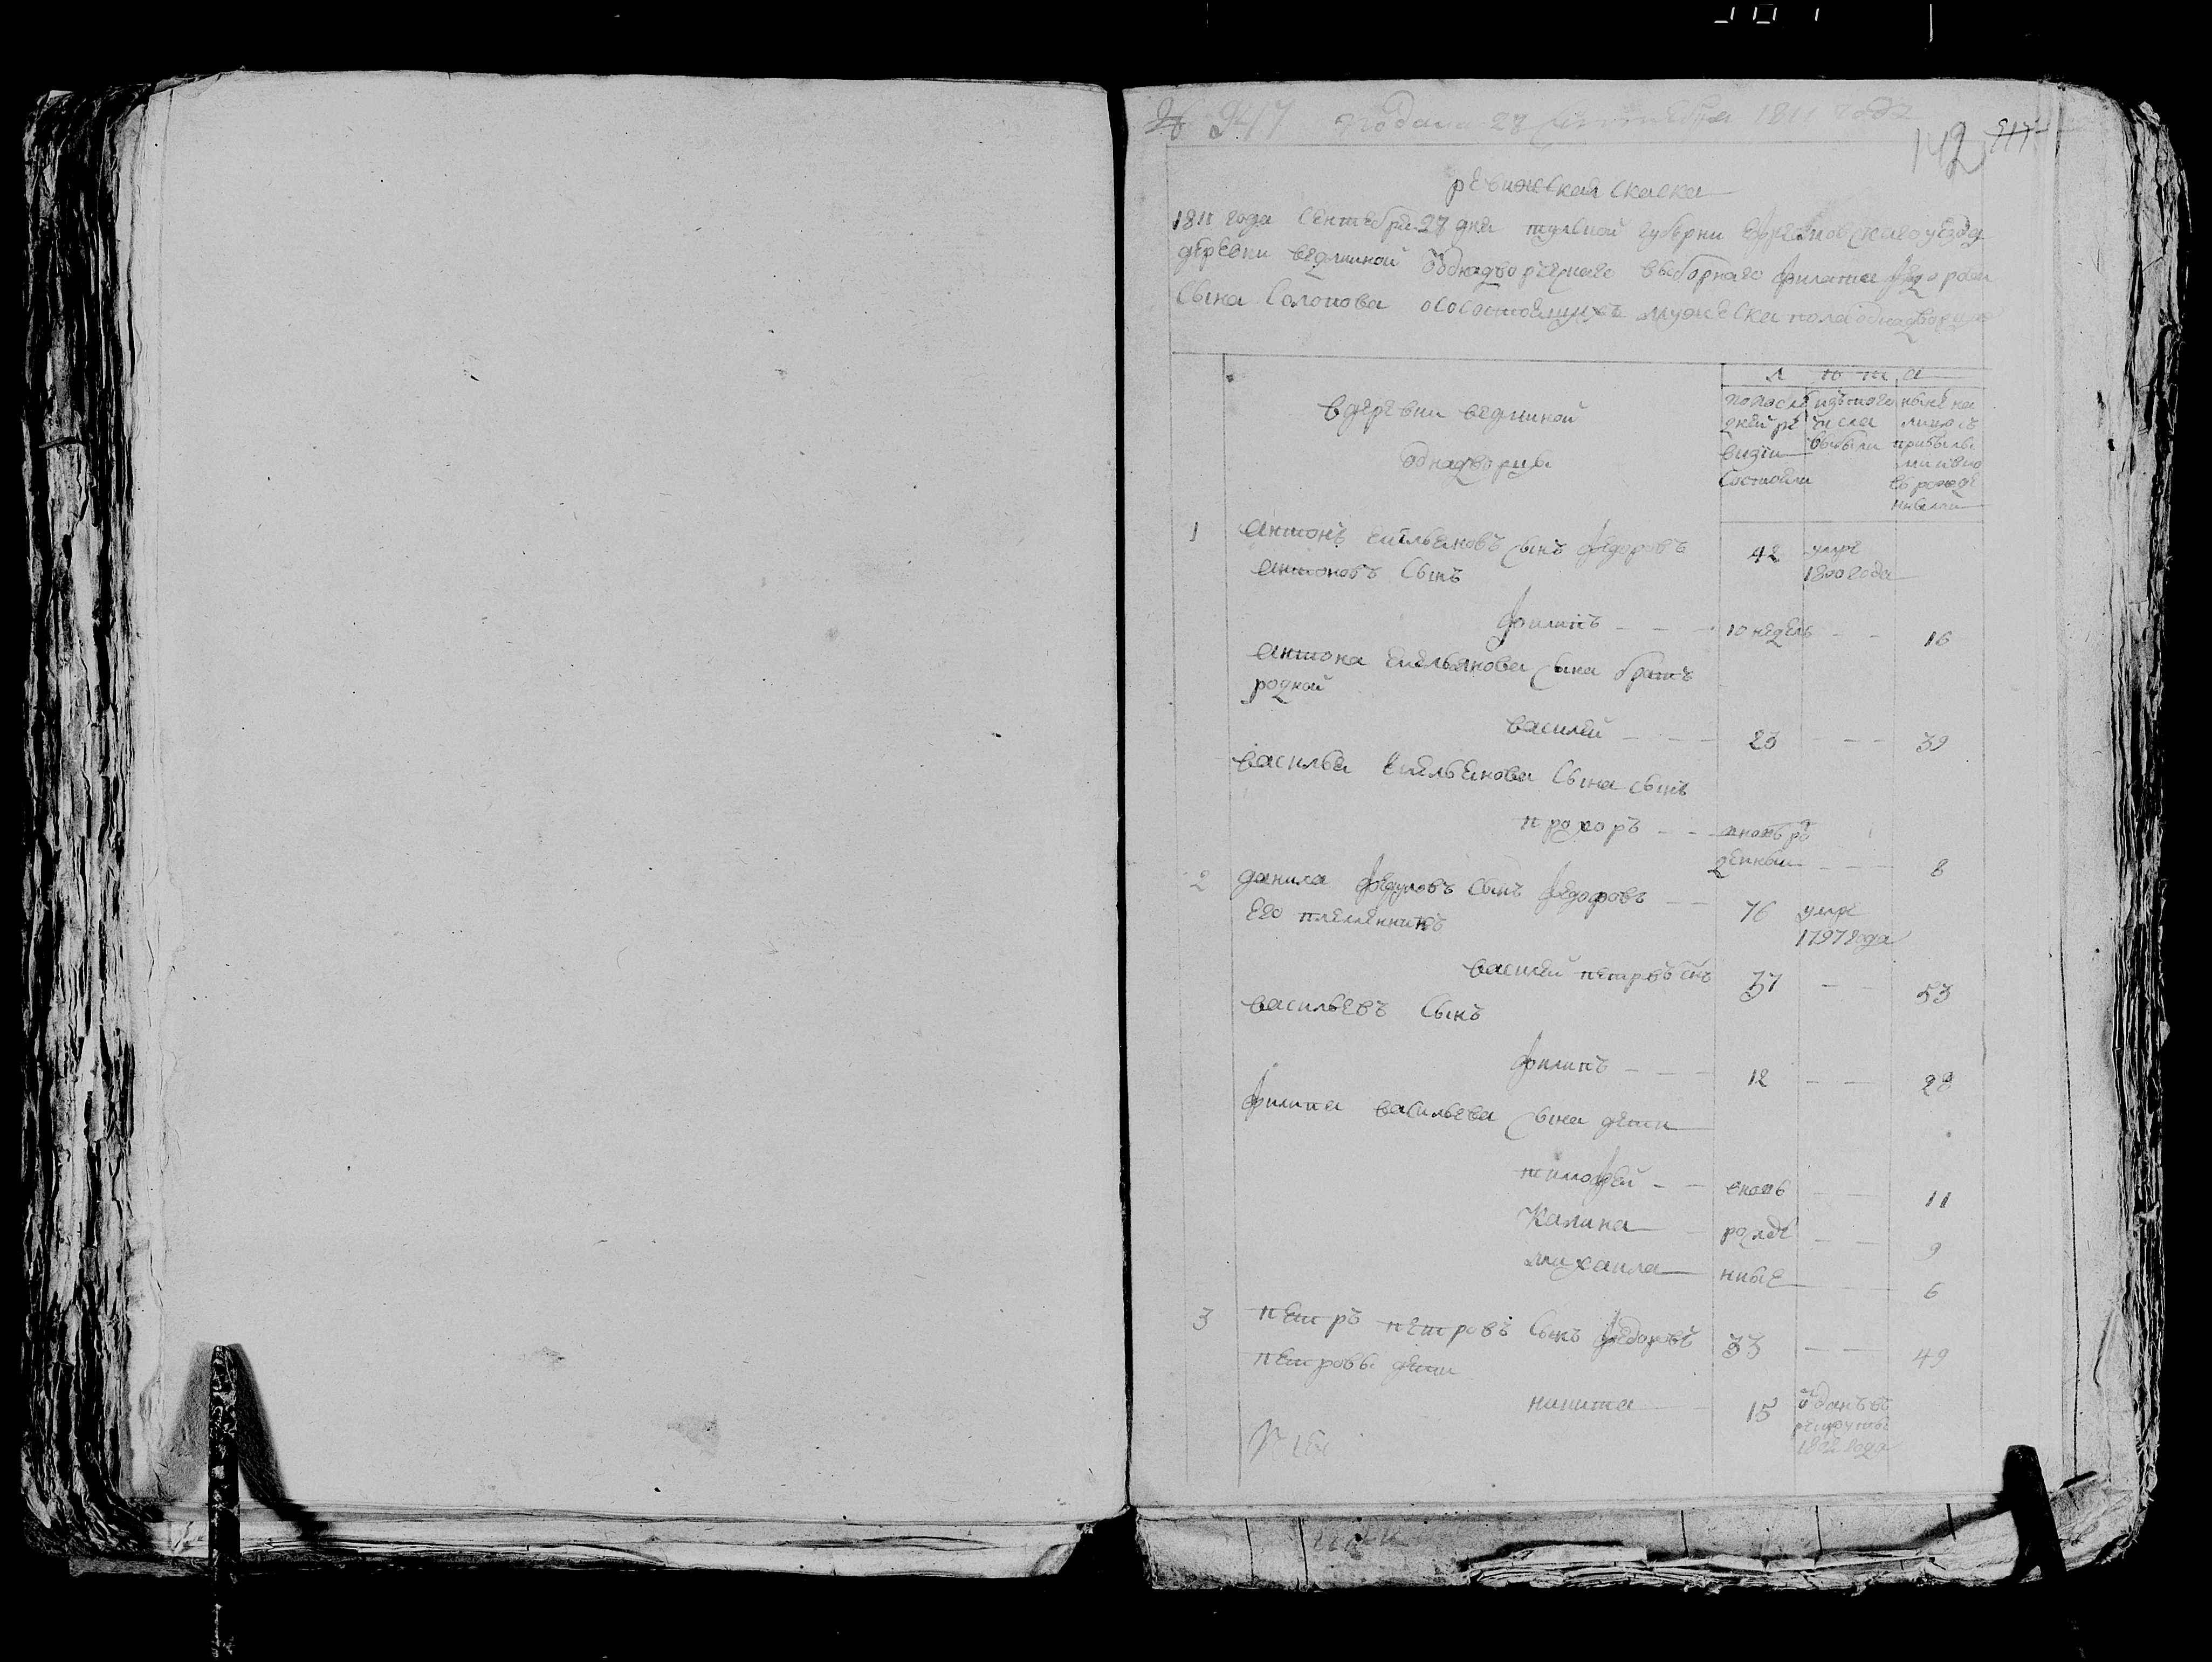 № 947 подана 28 сентября 1811 года
142
917
ревижская скаска
1811 года сентября 28 дня тульской губерни ефремовскаго уезда
деревни ведминой однадворческаго выборнаго филата федорова
сына солопова осостоящихъ мужеска пола однадворцах
лѣта
вдеревни ведминой
однадворцы
попослѣдней ревизïи состояли
изътого числа выбыли
ныне на лицо съ прибылыми ивновь рожденными
1 антонъ емельяновъ сынъ федоровъ 42 умре 1800 года
антоновъ сынъ
филипъ - - - 10 недель - - 16
антона емельянова сына братъ
родной
василей - - - 23 - - 39
василья емельянова сына сынъ
прохоръ - - вновь рожденный - - 8
2 данила федуловъ сынъ федоровъ - 76 умре 1797 года
его племенникъ
василей петровъ снъ 37 - - 53
васильевъ сынъ
филипъ - - - 12 - - 28
филипа васильева сына дети
тимофей - - вновь - - 11
калина - рожде - - 9
михаила - нные - - 6
3 петръ петровъ сынъ федоровъ 33 - - 49
петровы дети
никита - 15 отданъ въ рекруты